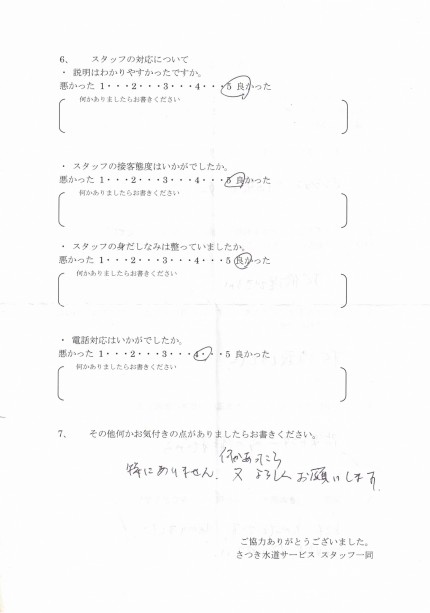 6、 スタッフの対応について
・ 説明はわかりやすかったですか。
悪かった 1・・・2・・・3・・・4・・・5 良かった
何かありましたらお書きください
・ スタッフの接客態度はいかがでしたか。
悪かった 1・・・2・・・3・・・4・・・5 良かった
何かありましたらお書きください
・ スタッフの身だしなみは整っていましたか。
悪かった 1・・・2・・・3・・・4・・・5 良かった
何かありましたらお書きください
・ 電話対応はいかがでしたか。
悪かった 1・・・2・・・3・・・4・・・5 良かった
何かありましたらお書きください
7、 その他何かお気付きの点がありましたらお書きください。
何かあったら
特にありません。又 よろしくお願いします。
ご協力ありがとうございました。
さつき水道サービス スタッフ一同